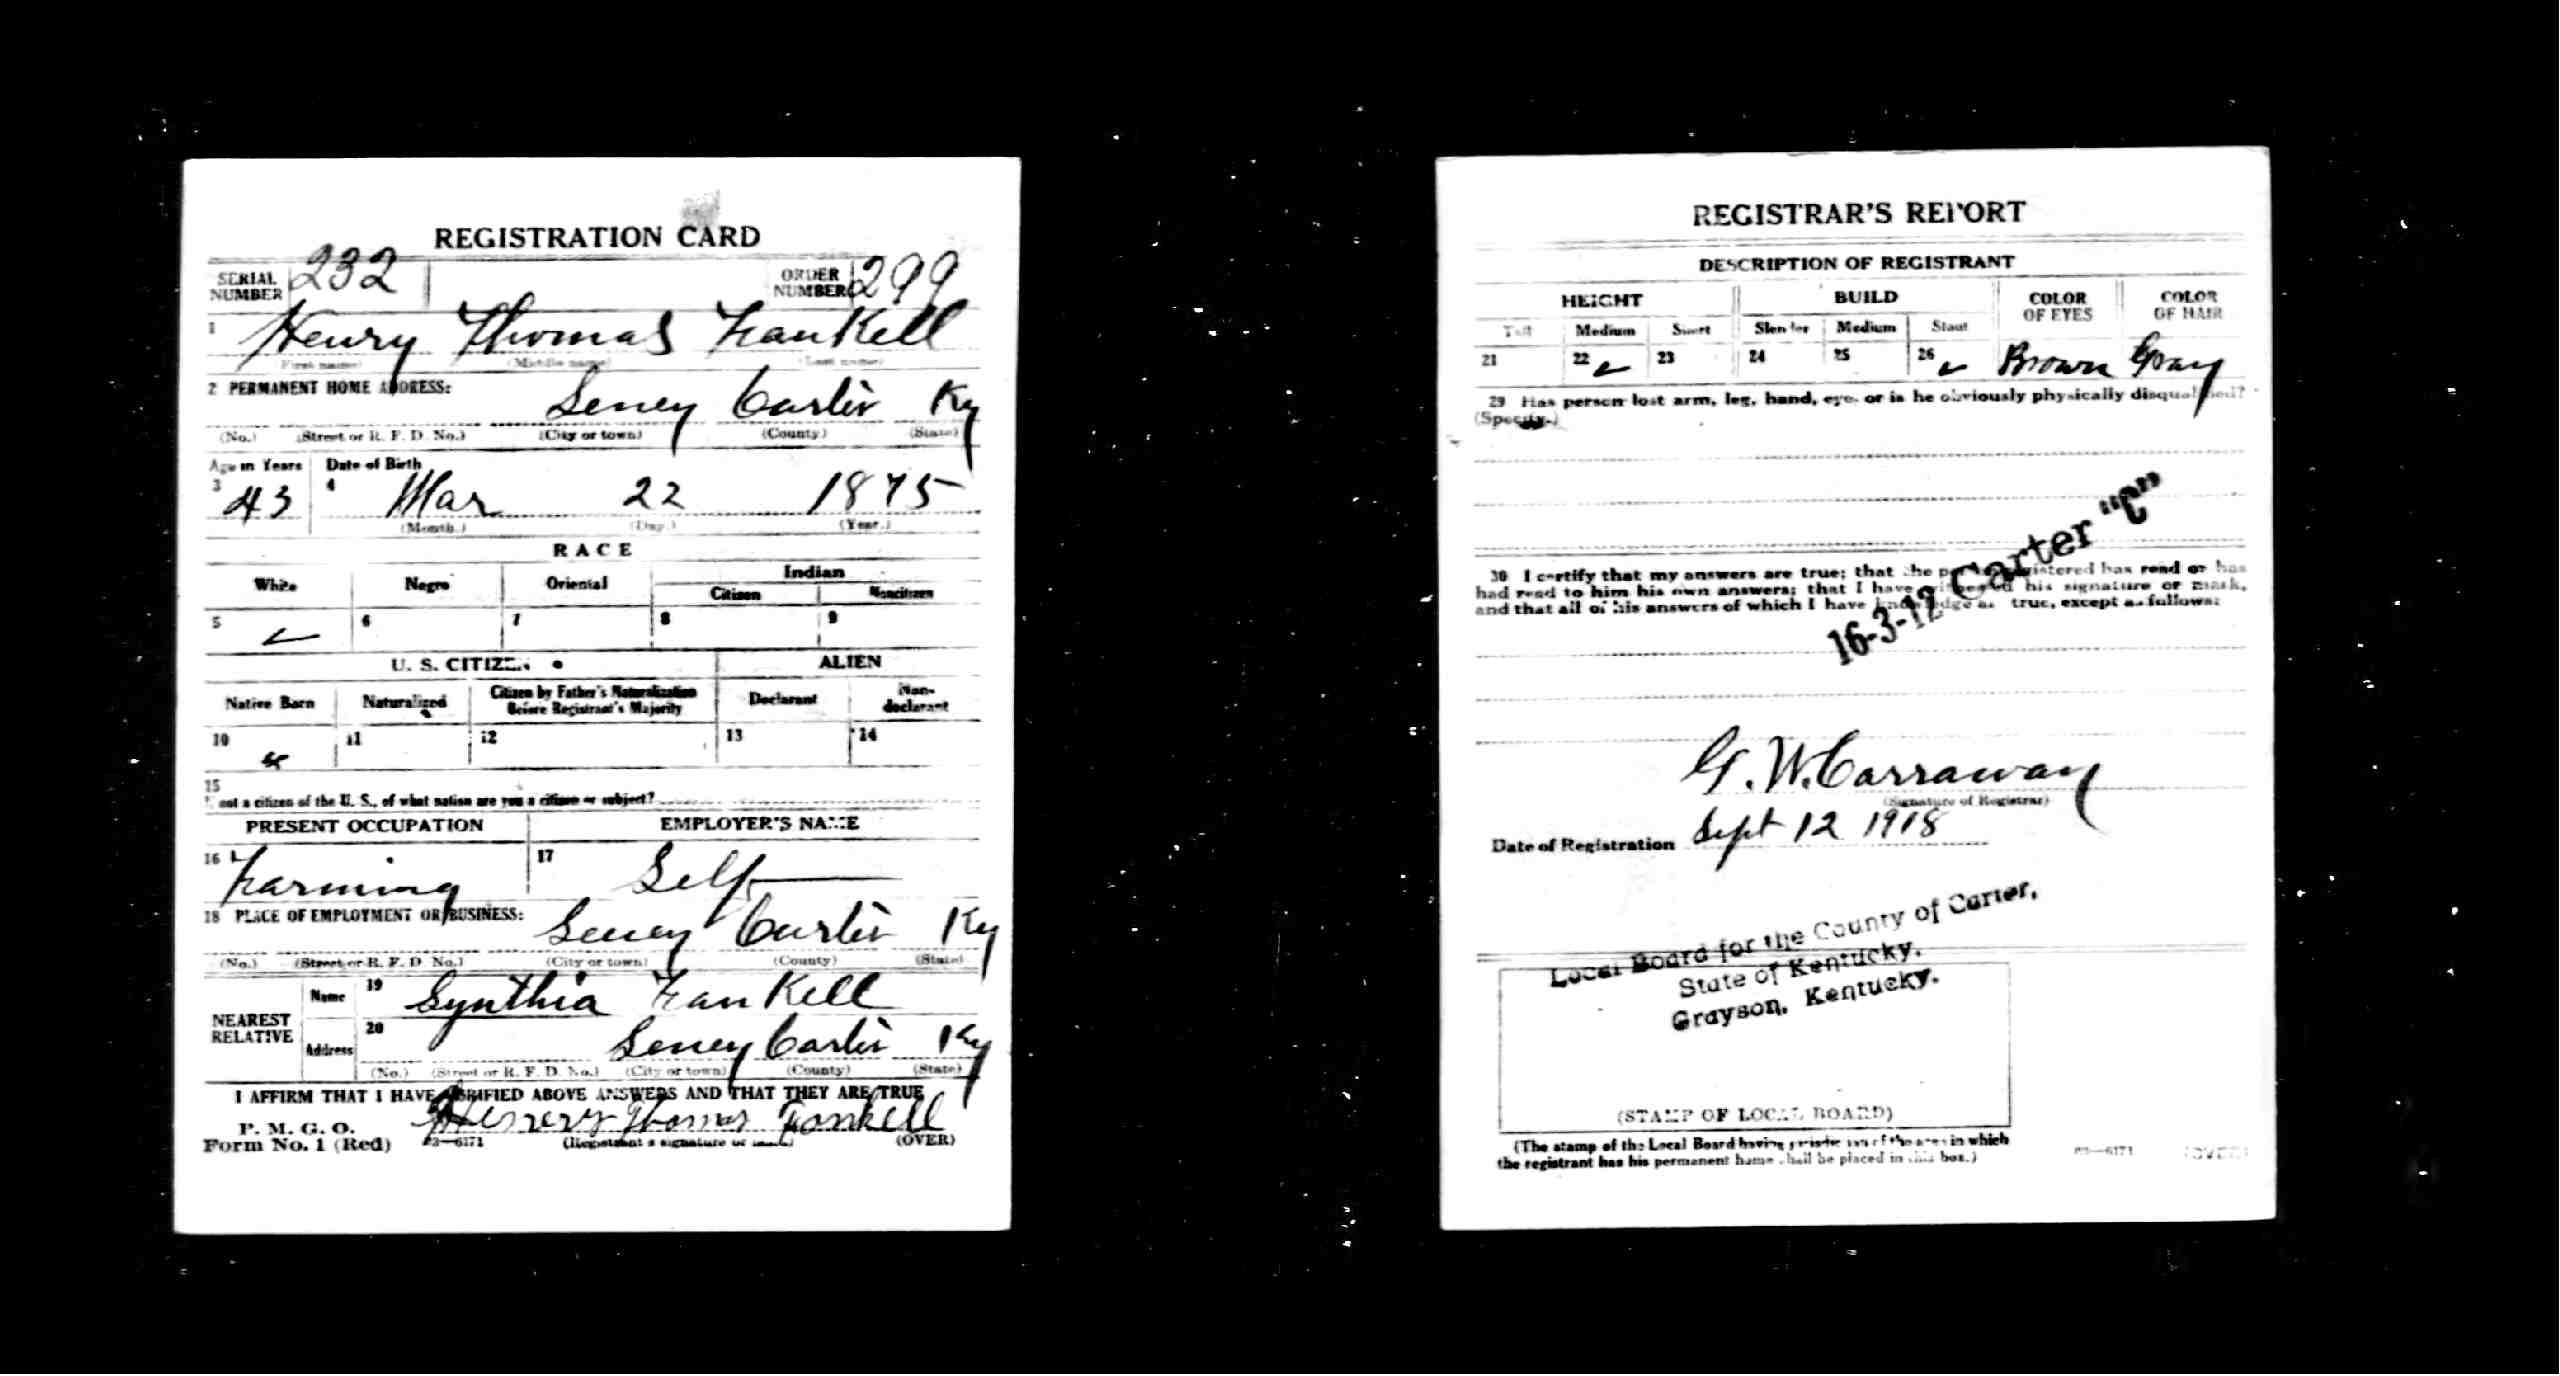 REGISTRATION CARD
SERIAL NUMBER 232 ORDER NUMBER 299
1 Henry Thomas FanKell
(First name) (Middle name) (Last name)
2 PERMANENT HOME ADDRESS:
Seney Carter Ky
(No.) (Street or R. F. D. No.) (City or town) (County) (State)
Age in Years Date of Birth
3 43 4 Mar 22 1875
(Month.) (Day.) (Year.)
RACE
White Negro Oriental Indian
Citizen Noncitizen
5 6 7 8 9
U. S. CITIZEN ALIEN
Native Born Naturalized Citizen by Father's Naturalization Before Registrant's Majority Declarant Non-declarant
10 11 12 13 14
15
not a citizen of the U. S., of what nation are you a citizen or subject?
PRESENT OCCUPATION EMPLOYER'S NAME
16 Farming 17 Self
18 PLACE OF EMPLOYMENT OR BUSINESS:
Seney Carter Ky
(No.) (Street or R. F. D. No.) (City or town) (County) (State)
NEAREST RELATIVE Name 19 Synthia FanKell
Address 20 Seney Carter Ky
(No.) (Street or R. F. D. No.) (City or town) (County) (State)
I AFFIRM THAT I HAVE VERIFIED ABOVE ANSWERS AND THAT THEY ARE TRUE
P. M. G. O.
Form No. 1 (Red) 03—6171 Henrery Thomas Fankell
(Registrant's signature or mark) (OVER)
REGISTRAR'S REPORT
DESCRIPTION OF REGISTRANT
HEIGHT BUILD COLOR OF EYES COLOR OF HAIR
Tall Medium Short Slender Medium Stout
21 22 23 24 25 26 Brown Gray
29 Has person lost arm, leg, hand, eye, or is he obviously physically disqualified?
(Specify.)
16-3-12 Carter "C"
30 I certify that my answers are true; that the person registered has read or has
had read to him his own answers; that I have witnessed his signature or mark,
and that all of his answers of which I have knowledge are true, except as follows:
G. W. Carraway
(Signature of Registrar)
Date of Registration Sept 12 1918
Local Board for the County of Carter,
State of Kentucky.
Grayson, Kentucky.
(STAMP OF LOCAL BOARD)
(The stamp of the Local Board having jurisdiction of the area in which
the registrant has his permanent home shall be placed in this box.)
03—6171 (OVER)